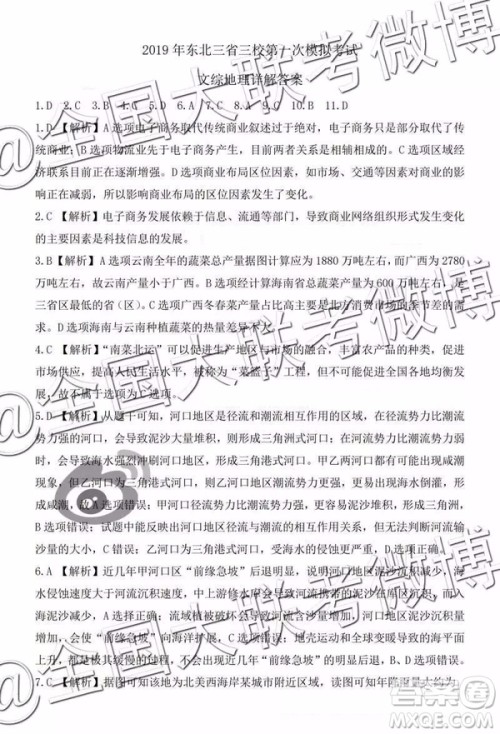 2019 年东北三省三校第一次模拟考试
文综地理详解答案
1.D 2.C 3.B 4.C 5.D 6.A 7.C 8.A 9.B 10.B 11.D
1.D 【解析】A 选项电子商务取代传统商业叙述过于绝对,电子商务只是部分取代了
传统商业;B 选项物流业先于电子商务产生,目前两者关系是相辅相成的。C 选项区域经
济联系目前正在逐渐增强。D 选项商业布局区位因素,如市场、交通等因素的影响
正在减弱,所以影响商业布局的区位因素发生了变化。
2.C 【解析】电子商务发展依赖与信息、流通等部门,导致商业网络组织形式发生变化
的主要因素是科技信息的发展。
3.B【解析】A 选项云南全年的蔬菜总产量据图计算应为 1880 万吨左右,而广西为 2780
万吨左右,故云南产量小于广西。B 选项经计算海南省总蔬菜产量为 600 万吨左右,是
三省区最低的省(区)。C 选项广西冬春菜产量占比高主要是北方消费市场的季节差的需
求。D 选项海南与云南种植蔬菜的热量差异不大。
4.C 【解析】“南菜北运”可以促进生产区与市场的融合,丰富农产品的种类,促进
市场供应,提高人民生活水平,被称为“菜篮子”工程,但不可能使全国各地均衡发
展,故不属于选项为 C 选项。
5.D 【解析】从题干可知,河口地区是径流和潮流相互作用的区域,在径流势力比潮流
势力强的河口,会导致泥沙大量淤积,形成三角洲式河口;在径流势力比潮流势力弱
时,会导致泥沙淤积量较少,形成三角港式河口。甲乙两河口都可能出现咸潮现
象,但乙河口为三角港式河口,会导致海水强烈冲刷河口地区,形成三角港式河
口,故 A 选项错误;三角洲式河口在甲河口,在径流和潮流作用下,会导致泥沙淤积,
B 选项错误;试题中能反映出河口地区盐度大小,C 错误;乙河口为三角港式河口,受海水的侵蚀更严重,D 正确。
6.A 【解析】近几年甲河口区“前缘急坡”向岸推进,说明河口地区泥沙沉积减少,海
水侵蚀速度大于河流沉积速度,由于上游修水库会导致河流携带的泥沙在库区沉积,而入
海泥沙减少,A 选项正确;流域植被破坏会导致水土流失,河流含沙量增大,
会导致“前缘急坡”向海洋扩展,C 选项错误;地壳运动和全球变暖导致的海平面
上升都是极其缓慢的过程,不会出现近几年“前缘急坡”的明显后退,B、D 选项错误。
7.C 【解析】据图可知该地为北美西海岸某城市附近区域,读图可知每年降雨量大约为